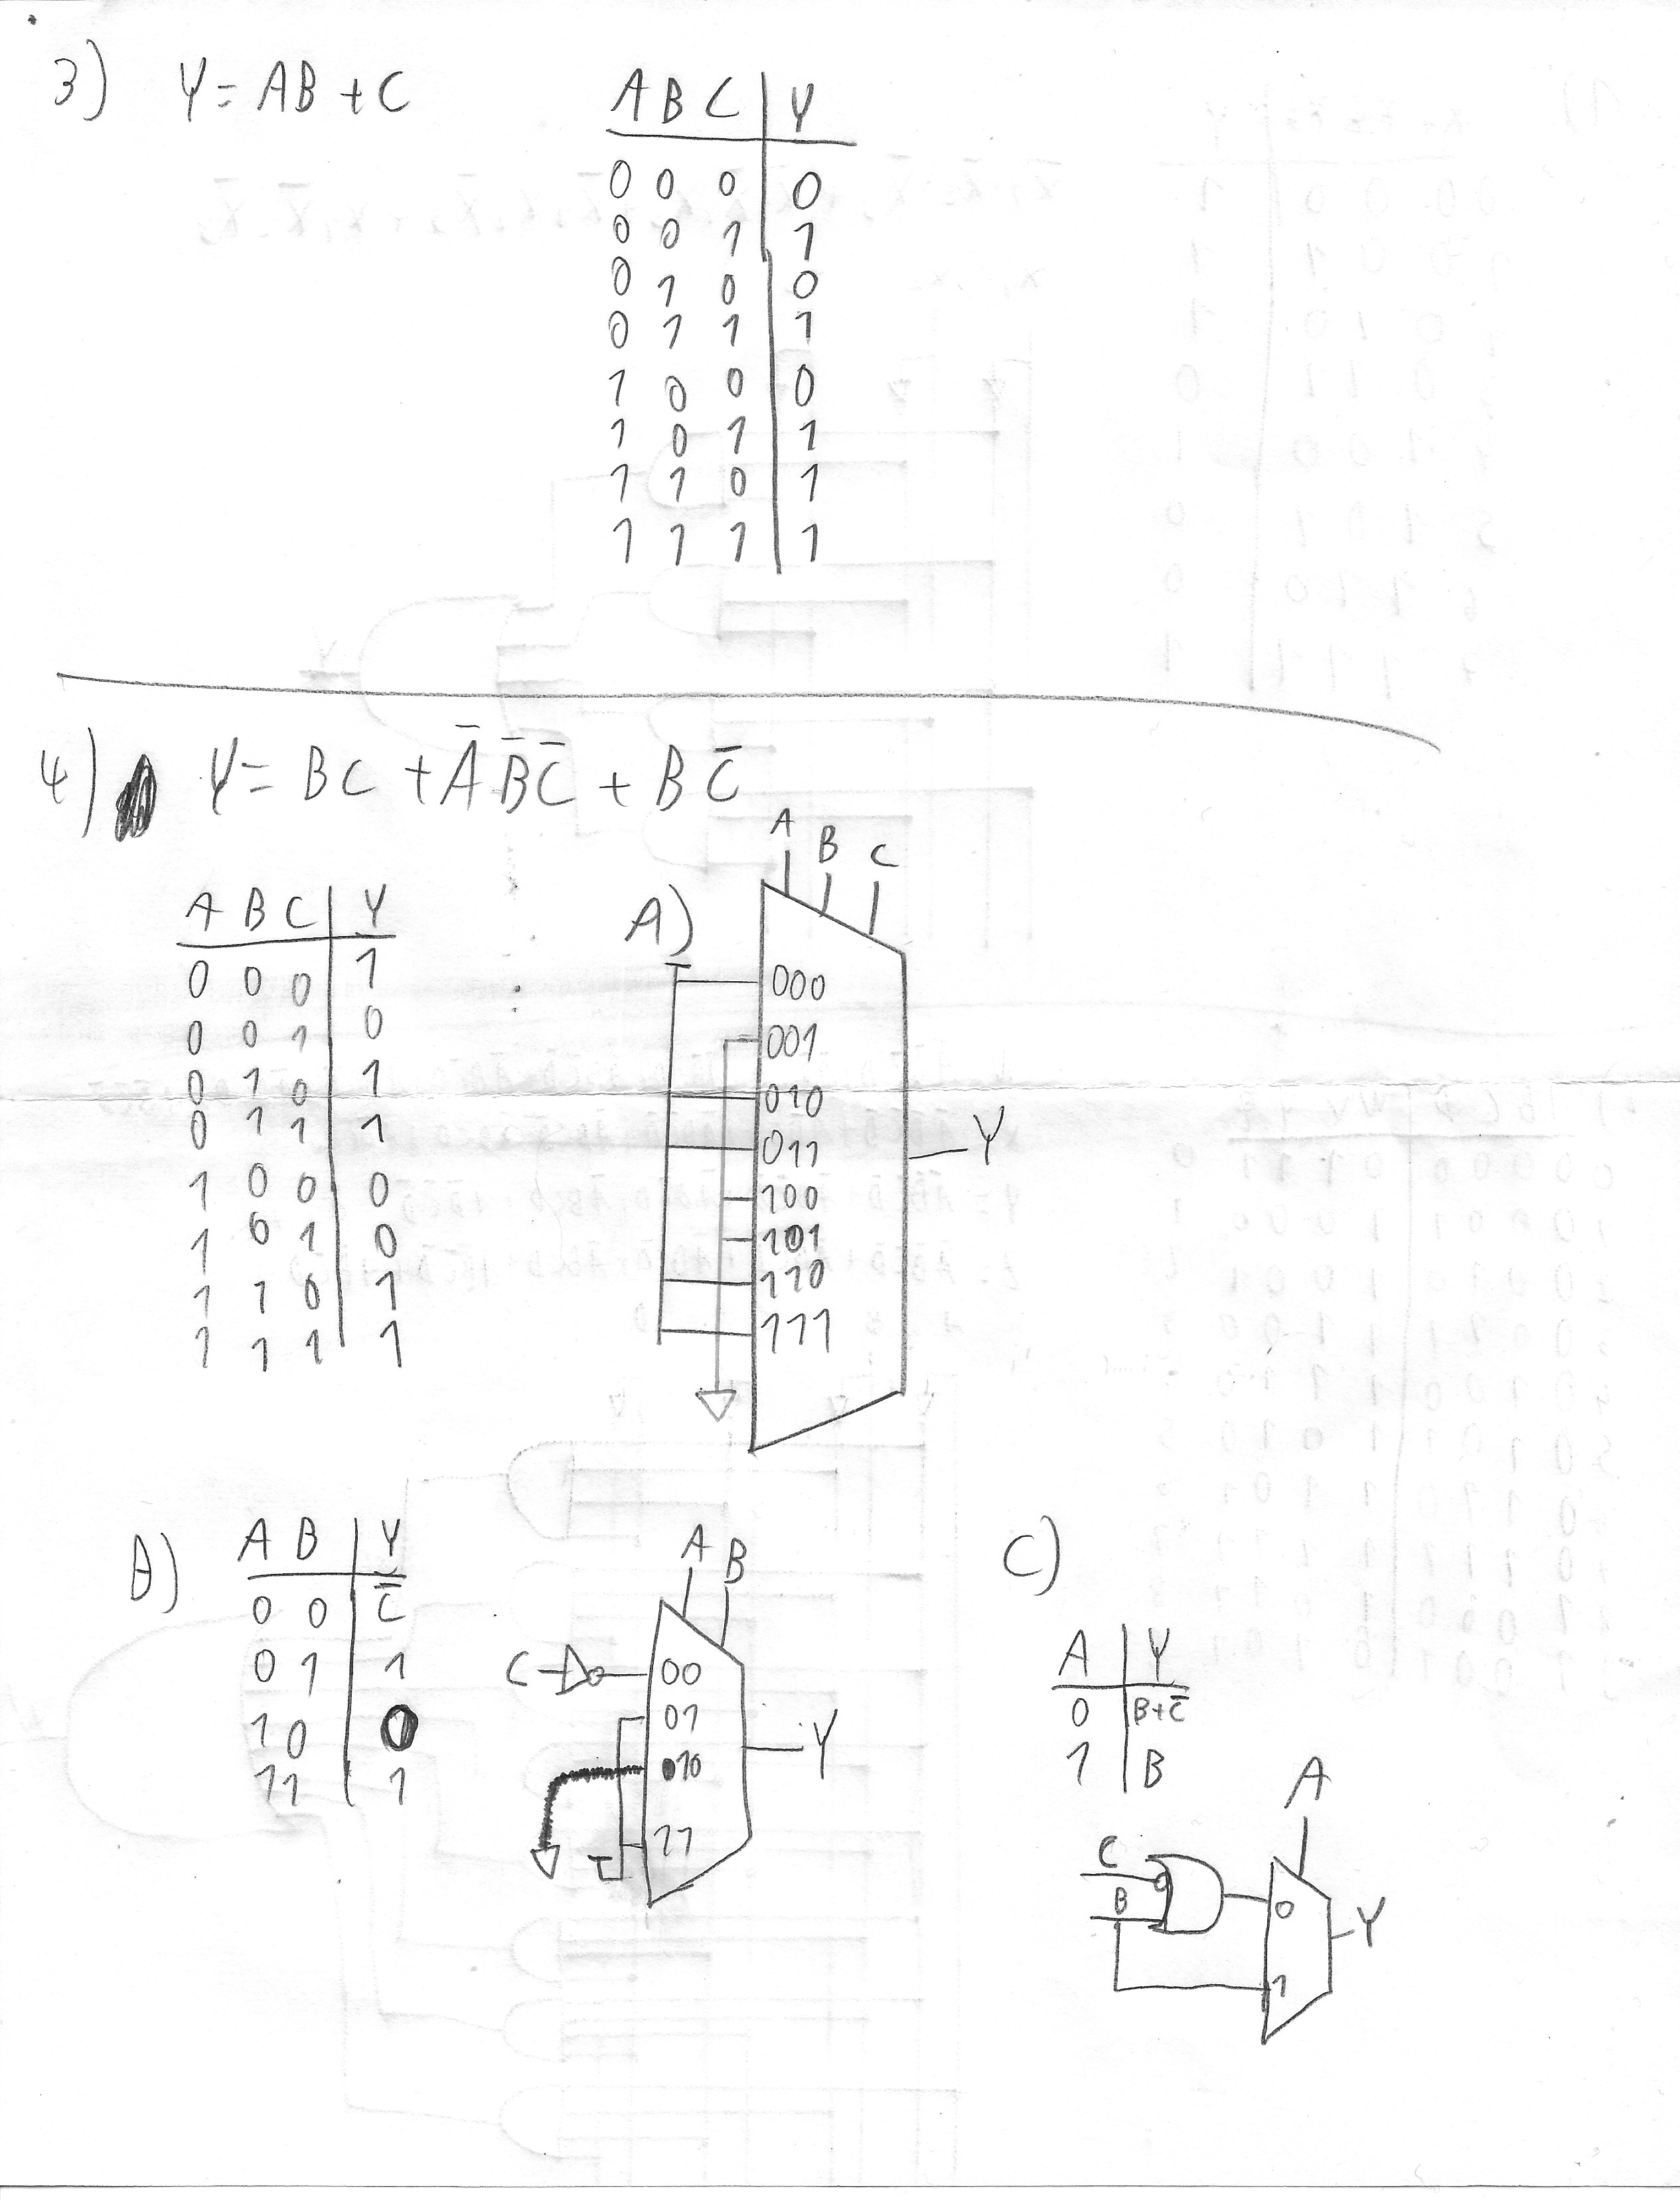 3) Y = AB + C
A B C Y
0 0 0 0
0 0 1 1
0 1 0 0
0 1 1 1
1 0 0 0
1 0 1 1
1 1 0 1
1 1 1 1
4) Y = BC + A̅ B̅ C̅ + B C̅
A B C Y
0 0 0 1
0 0 1 0
0 1 0 1
0 1 1 1
1 0 0 0
1 0 1 0
1 1 0 1
1 1 1 1
A)
A B C
000
001
010
011
100
101
110
111
Y
B)
A B Y
0 0 C̅
0 1 1
1 0 0
1 1 1
A B
C 00
01
10
11
Y
C)
A Y
0 B+C̅
1 B
A
C
B
0
1
Y